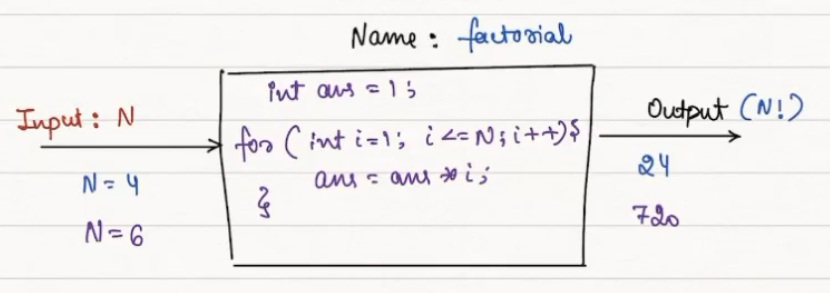 Name: factorial
int ans = 1;
Input: N
Output (N!)
for (int i=1; i<=N; i++){
N=4
ans = ans * i;
24
}
N=6
720